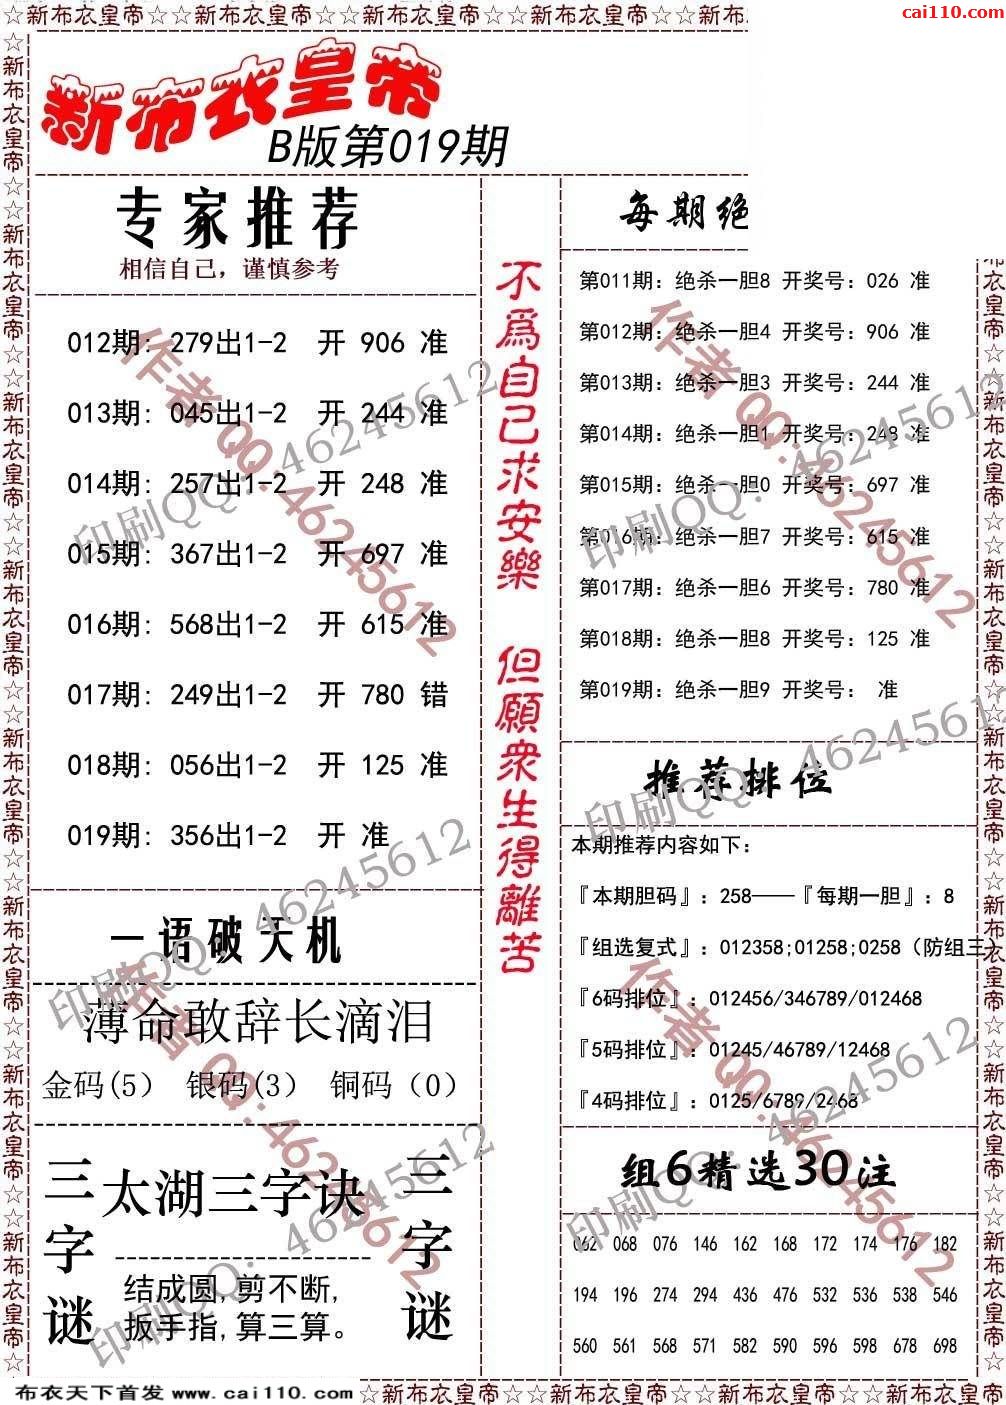 ☆新布衣皇帝☆☆新布衣皇帝☆☆新布衣皇帝☆☆新布衣皇帝☆☆新布
cai110.com
新布衣皇帝
B版第019期
专家推荐
相信自己，谨慎参考
012期: 279出1-2 开 906 准
013期: 045出1-2 开 244 准
014期: 257出1-2 开 248 准
015期: 367出1-2 开 697 准
016期: 568出1-2 开 615 准
017期: 249出1-2 开 780 错
018期: 056出1-2 开 125 准
019期: 356出1-2 开 准
一语破天机
薄命敢辞长滴泪
金码(5) 银码(3) 铜码（0）
三字谜
太湖三字诀
结成圆,剪不断,
扳手指,算三算。
三字谜
不為自己求安樂 但願眾生得離苦
每期绝
第011期: 绝杀一胆8 开奖号: 026 准
第012期: 绝杀一胆4 开奖号: 906 准
第013期: 绝杀一胆3 开奖号: 244 准
第014期: 绝杀一胆1 开奖号: 248 准
第015期: 绝杀一胆0 开奖号: 697 准
第016期: 绝杀一胆7 开奖号: 615 准
第017期: 绝杀一胆6 开奖号: 780 准
第018期: 绝杀一胆8 开奖号: 125 准
第019期: 绝杀一胆9 开奖号: 准
推荐排位
本期推荐内容如下:
『本期胆码』: 258——『每期一胆』: 8
『组选复式』: 012358;01258;0258（防组三）
『6码排位』: 012456/346789/012468
『5码排位』: 01245/46789/12468
『4码排位』: 0125/6789/2468
组6精选30注
062 068 076 146 162 168 172 174 176 182
194 196 274 294 436 476 532 536 538 546
560 561 568 571 582 590 596 598 678 698
作者QQ:46245612
印刷QQ: 46245612
作者QQ:46245612
印刷QQ: 46245612
印刷QQ: 46245612
作者QQ:46245612
印刷QQ: 46245612
印刷QQ: 46245612
作者QQ:46245612
印刷QQ: 46245612
☆新布衣皇帝☆☆新布衣皇帝☆☆新布衣皇帝☆☆新布衣皇帝☆☆新布衣皇帝☆☆新布衣皇帝☆☆新布衣皇帝☆☆新布衣皇帝☆
衣皇帝☆☆新布衣皇帝☆☆新布衣皇帝☆☆新布衣皇帝☆☆新布衣皇帝☆☆新布衣皇帝☆☆新布衣皇帝☆
布衣天下首发 www.cai110.com
☆新布衣皇帝☆☆新布衣皇帝☆☆新布衣皇帝☆☆新布衣皇帝☆